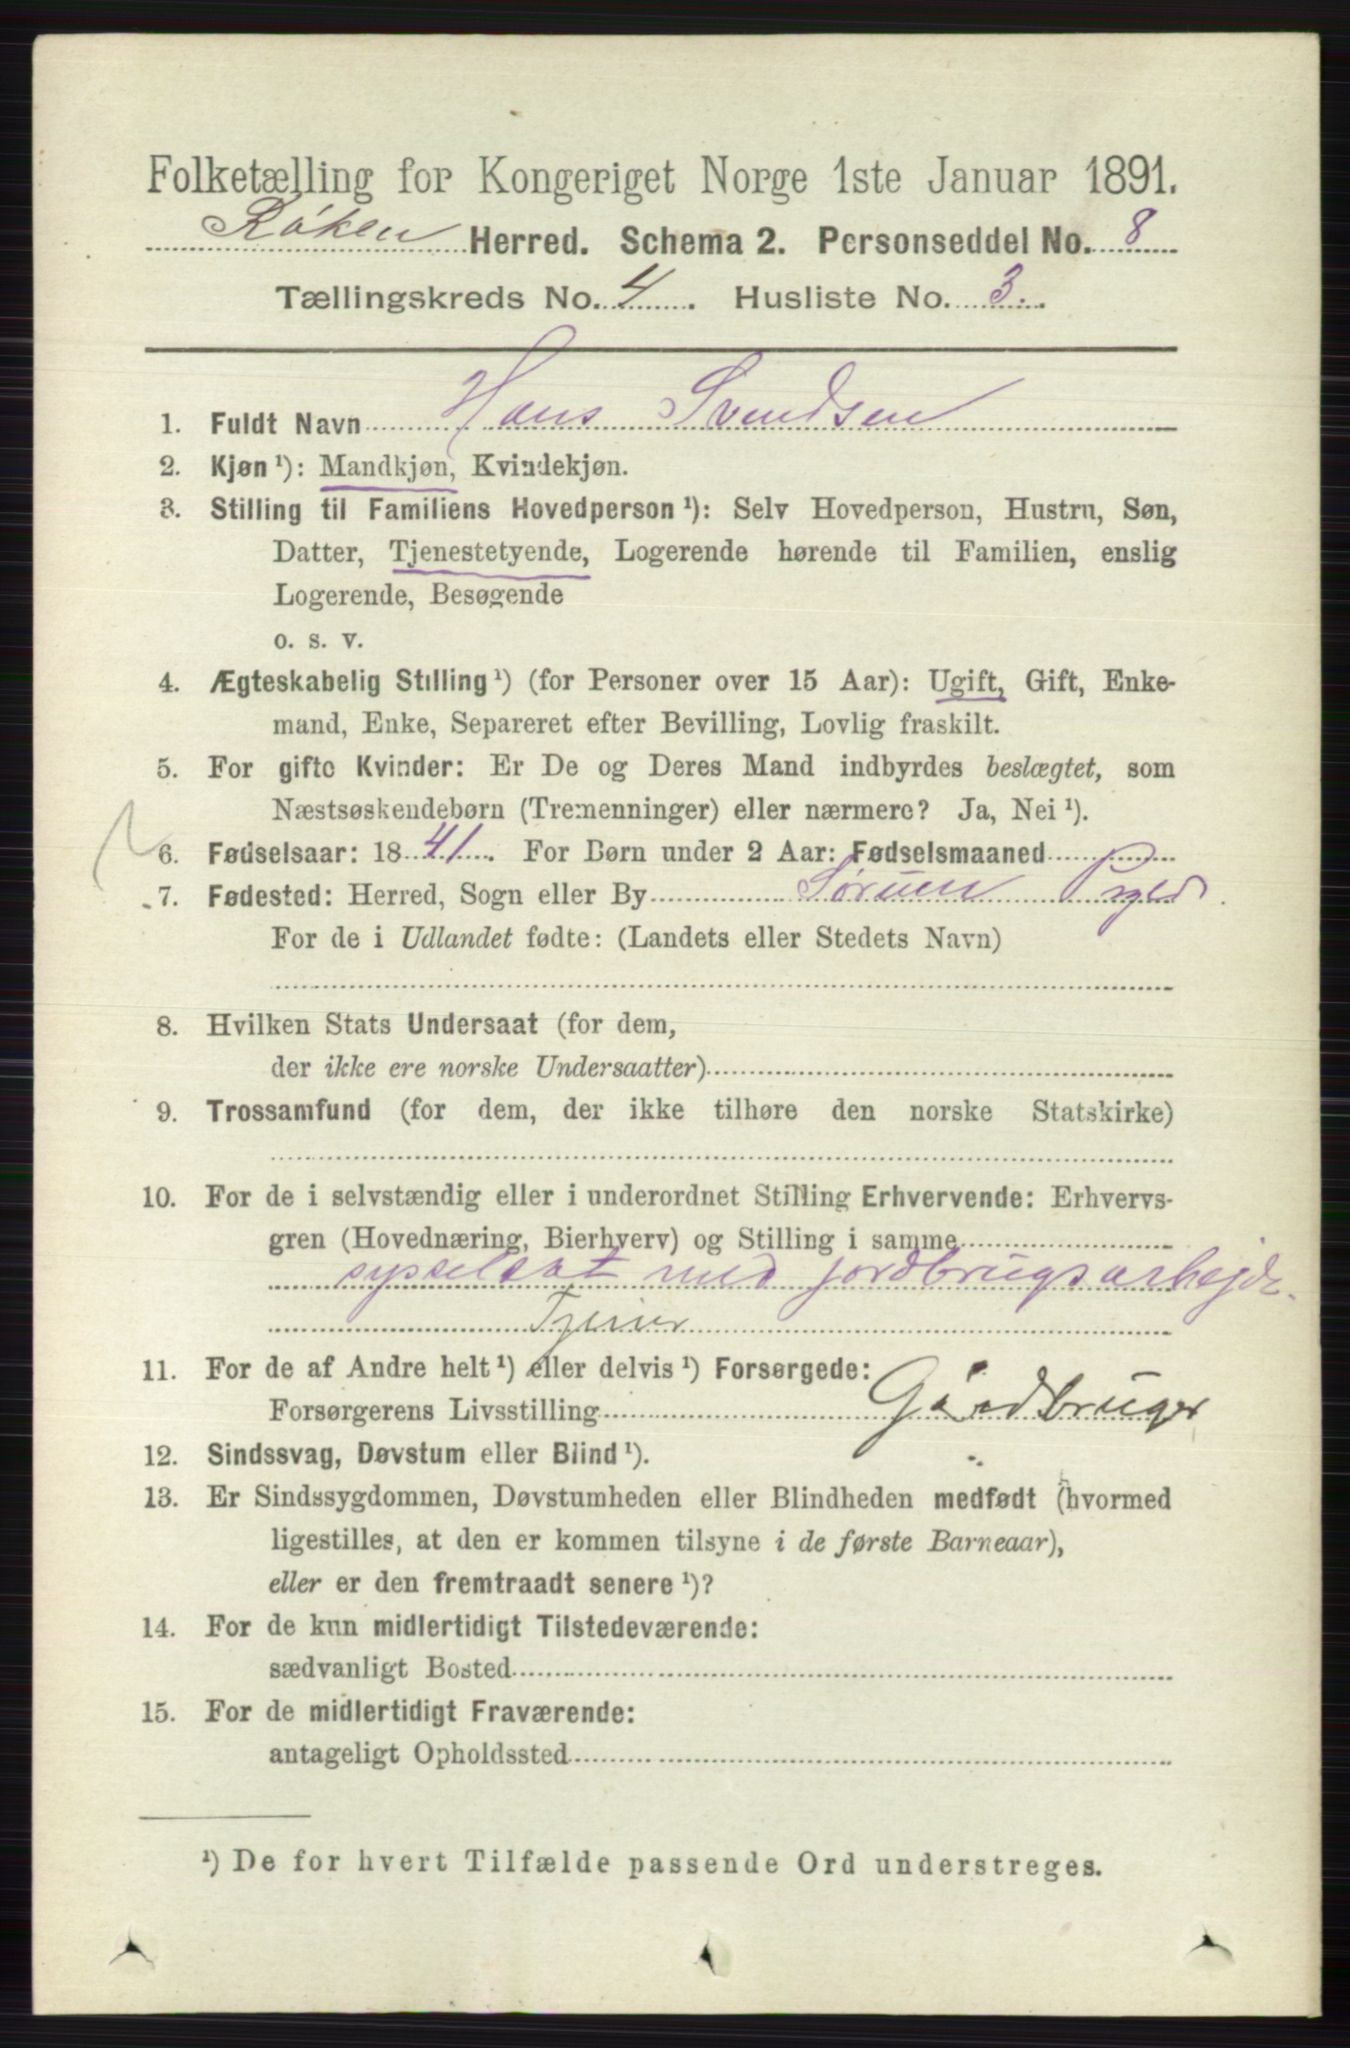 Folketælling for Kongeriget Norge 1ste Januar 1891.
Røken Herred. Schema 2. Personseddel No. 8
Tællingskreds No. 4. Husliste No. 3.
1. Fuldt Navn Hans Svendsen
2. Kjøn ¹): Mandkjøn, Kvindekjøn.
3. Stilling til Familiens Hovedperson ¹): Selv Hovedperson, Hustru, Søn,
Datter, Tjenestetyende, Logerende hørende til Familien, enslig
Logerende, Besøgende
o. s. v.
4. Ægteskabelig Stilling ¹) (for Personer over 15 Aar): Ugift, Gift, Enke-
mand, Enke, Separeret efter Bevilling, Lovlig fraskilt.
5. For gifte Kvinder: Er De og Deres Mand indbyrdes beslægtet, som
Næstsøskendebørn (Tremenninger) eller nærmere? Ja, Nei ¹).
6. Fødselsaar: 1841. For Børn under 2 Aar: Fødselsmaaned
7. Fødested: Herred, Sogn eller By
For de i Udlandet fødte: (Landets eller Stedets Navn)
8. Hvilken Stats Undersaat (for dem,
der ikke ere norske Undersaatter)
9. Trossamfund (for dem, der ikke tilhøre den norske Statskirke)
10. For de i selvstændig eller i underordnet Stilling Erhvervende: Erhvervs-
gren (Hovednæring, Bierhverv) og Stilling i samme
sysselsat med jordbrugsarbejde.
Tjener
11. For de af Andre helt ¹) eller delvis ¹) Forsørgede:
Forsørgerens Livsstilling Gårdbruger
12. Sindssvag, Døvstum eller Blind ¹).
13. Er Sindssygdommen, Døvstumheden eller Blindheden medfødt (hvormed
ligestilles, at den er kommen tilsyne i de første Barneaar),
eller er den fremtraadt senere ¹)?
14. For de kun midlertidigt Tilstedeværende:
sædvanligt Bosted
15. For de midlertidigt Fraværende:
antageligt Opholdssted
¹) De for hvert Tilfælde passende Ord understreges.